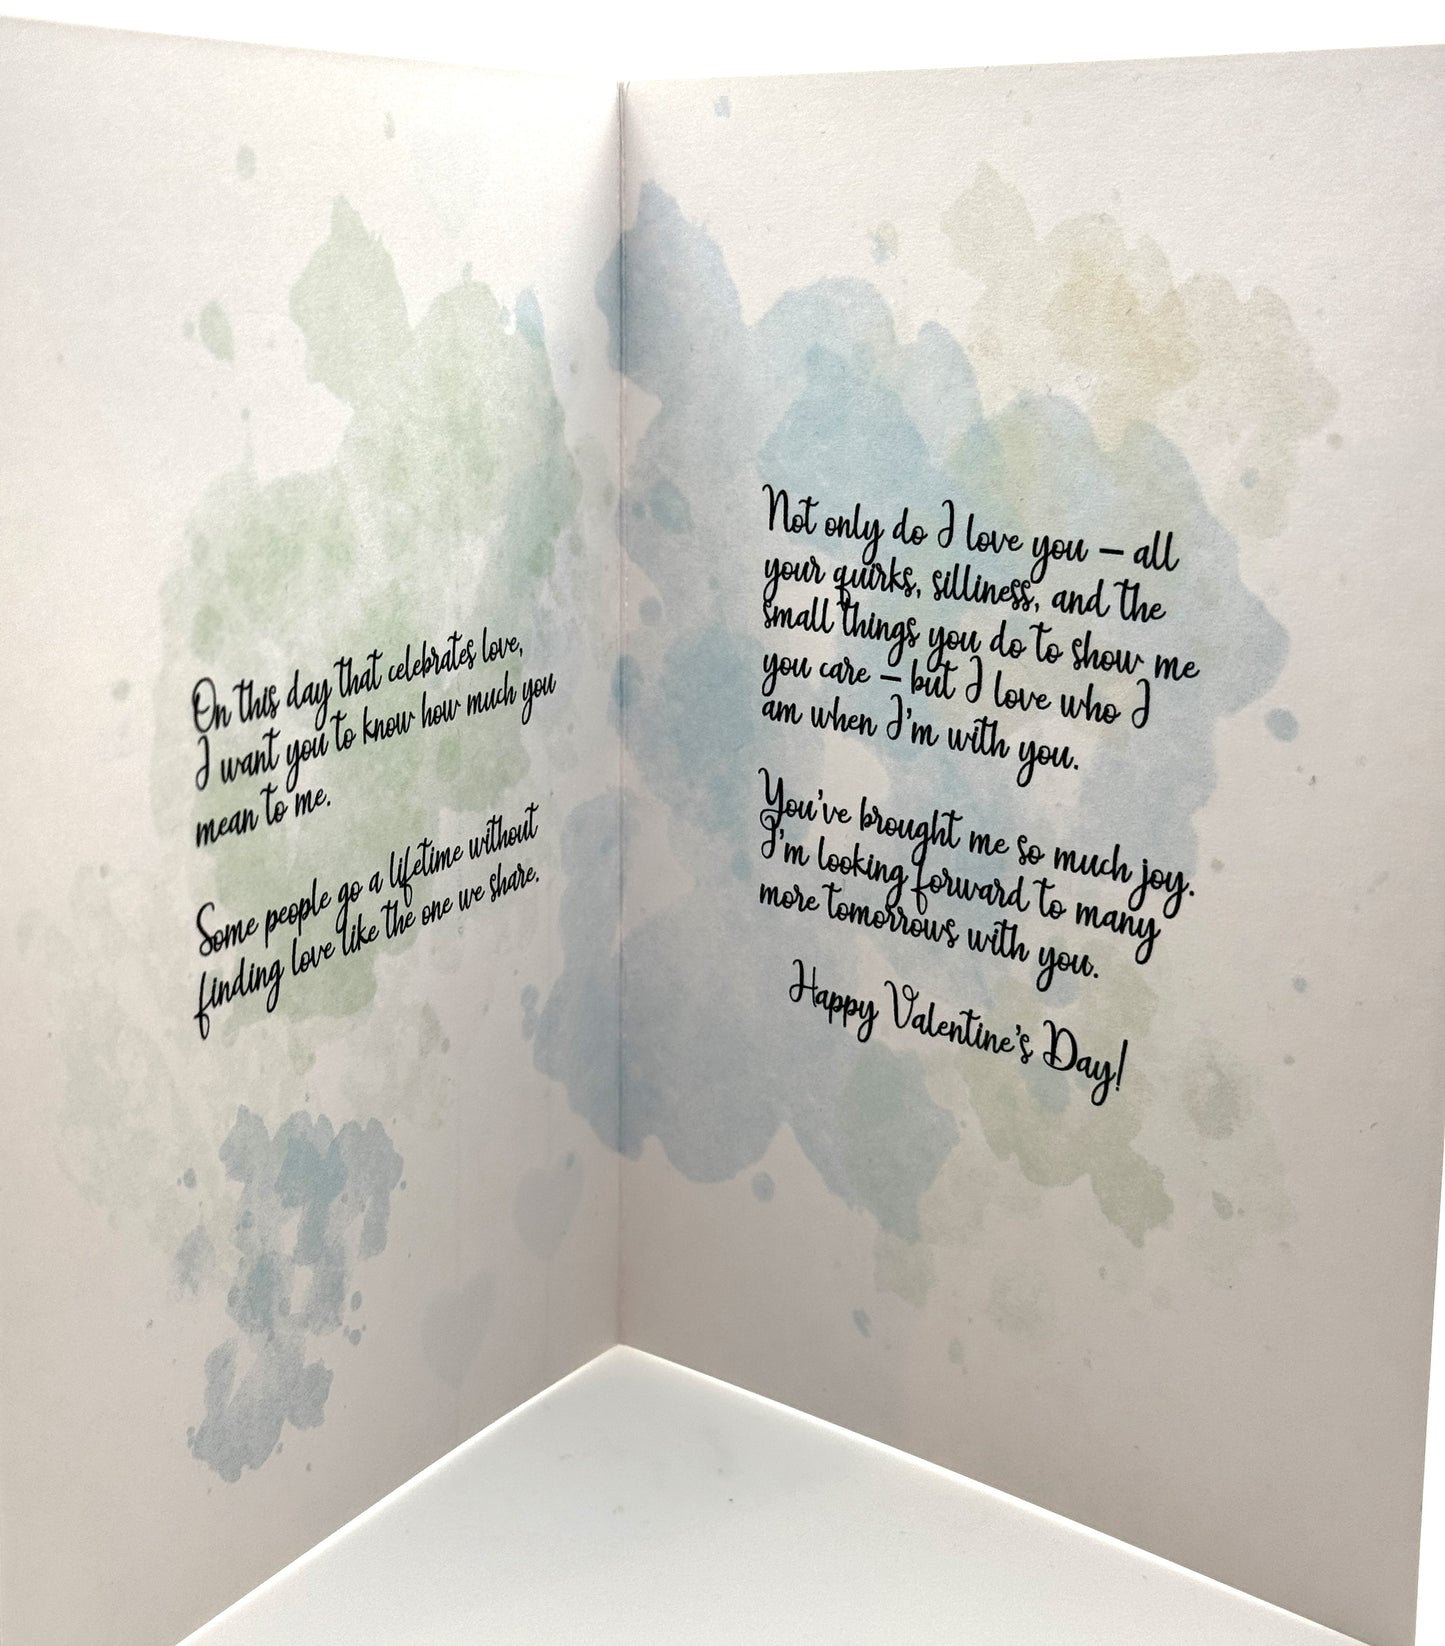 On this day that celebrates love,
I want you to know how much you
mean to me.
Some people go a lifetime without
finding love like the one we share.
Not only do I love you – all
your quirks, silliness, and the
small things you do to show me
you care – but I love who I
am when I'm with you.
You've brought me so much joy.
I'm looking forward to many
more tomorrows with you.
Happy Valentine's Day!